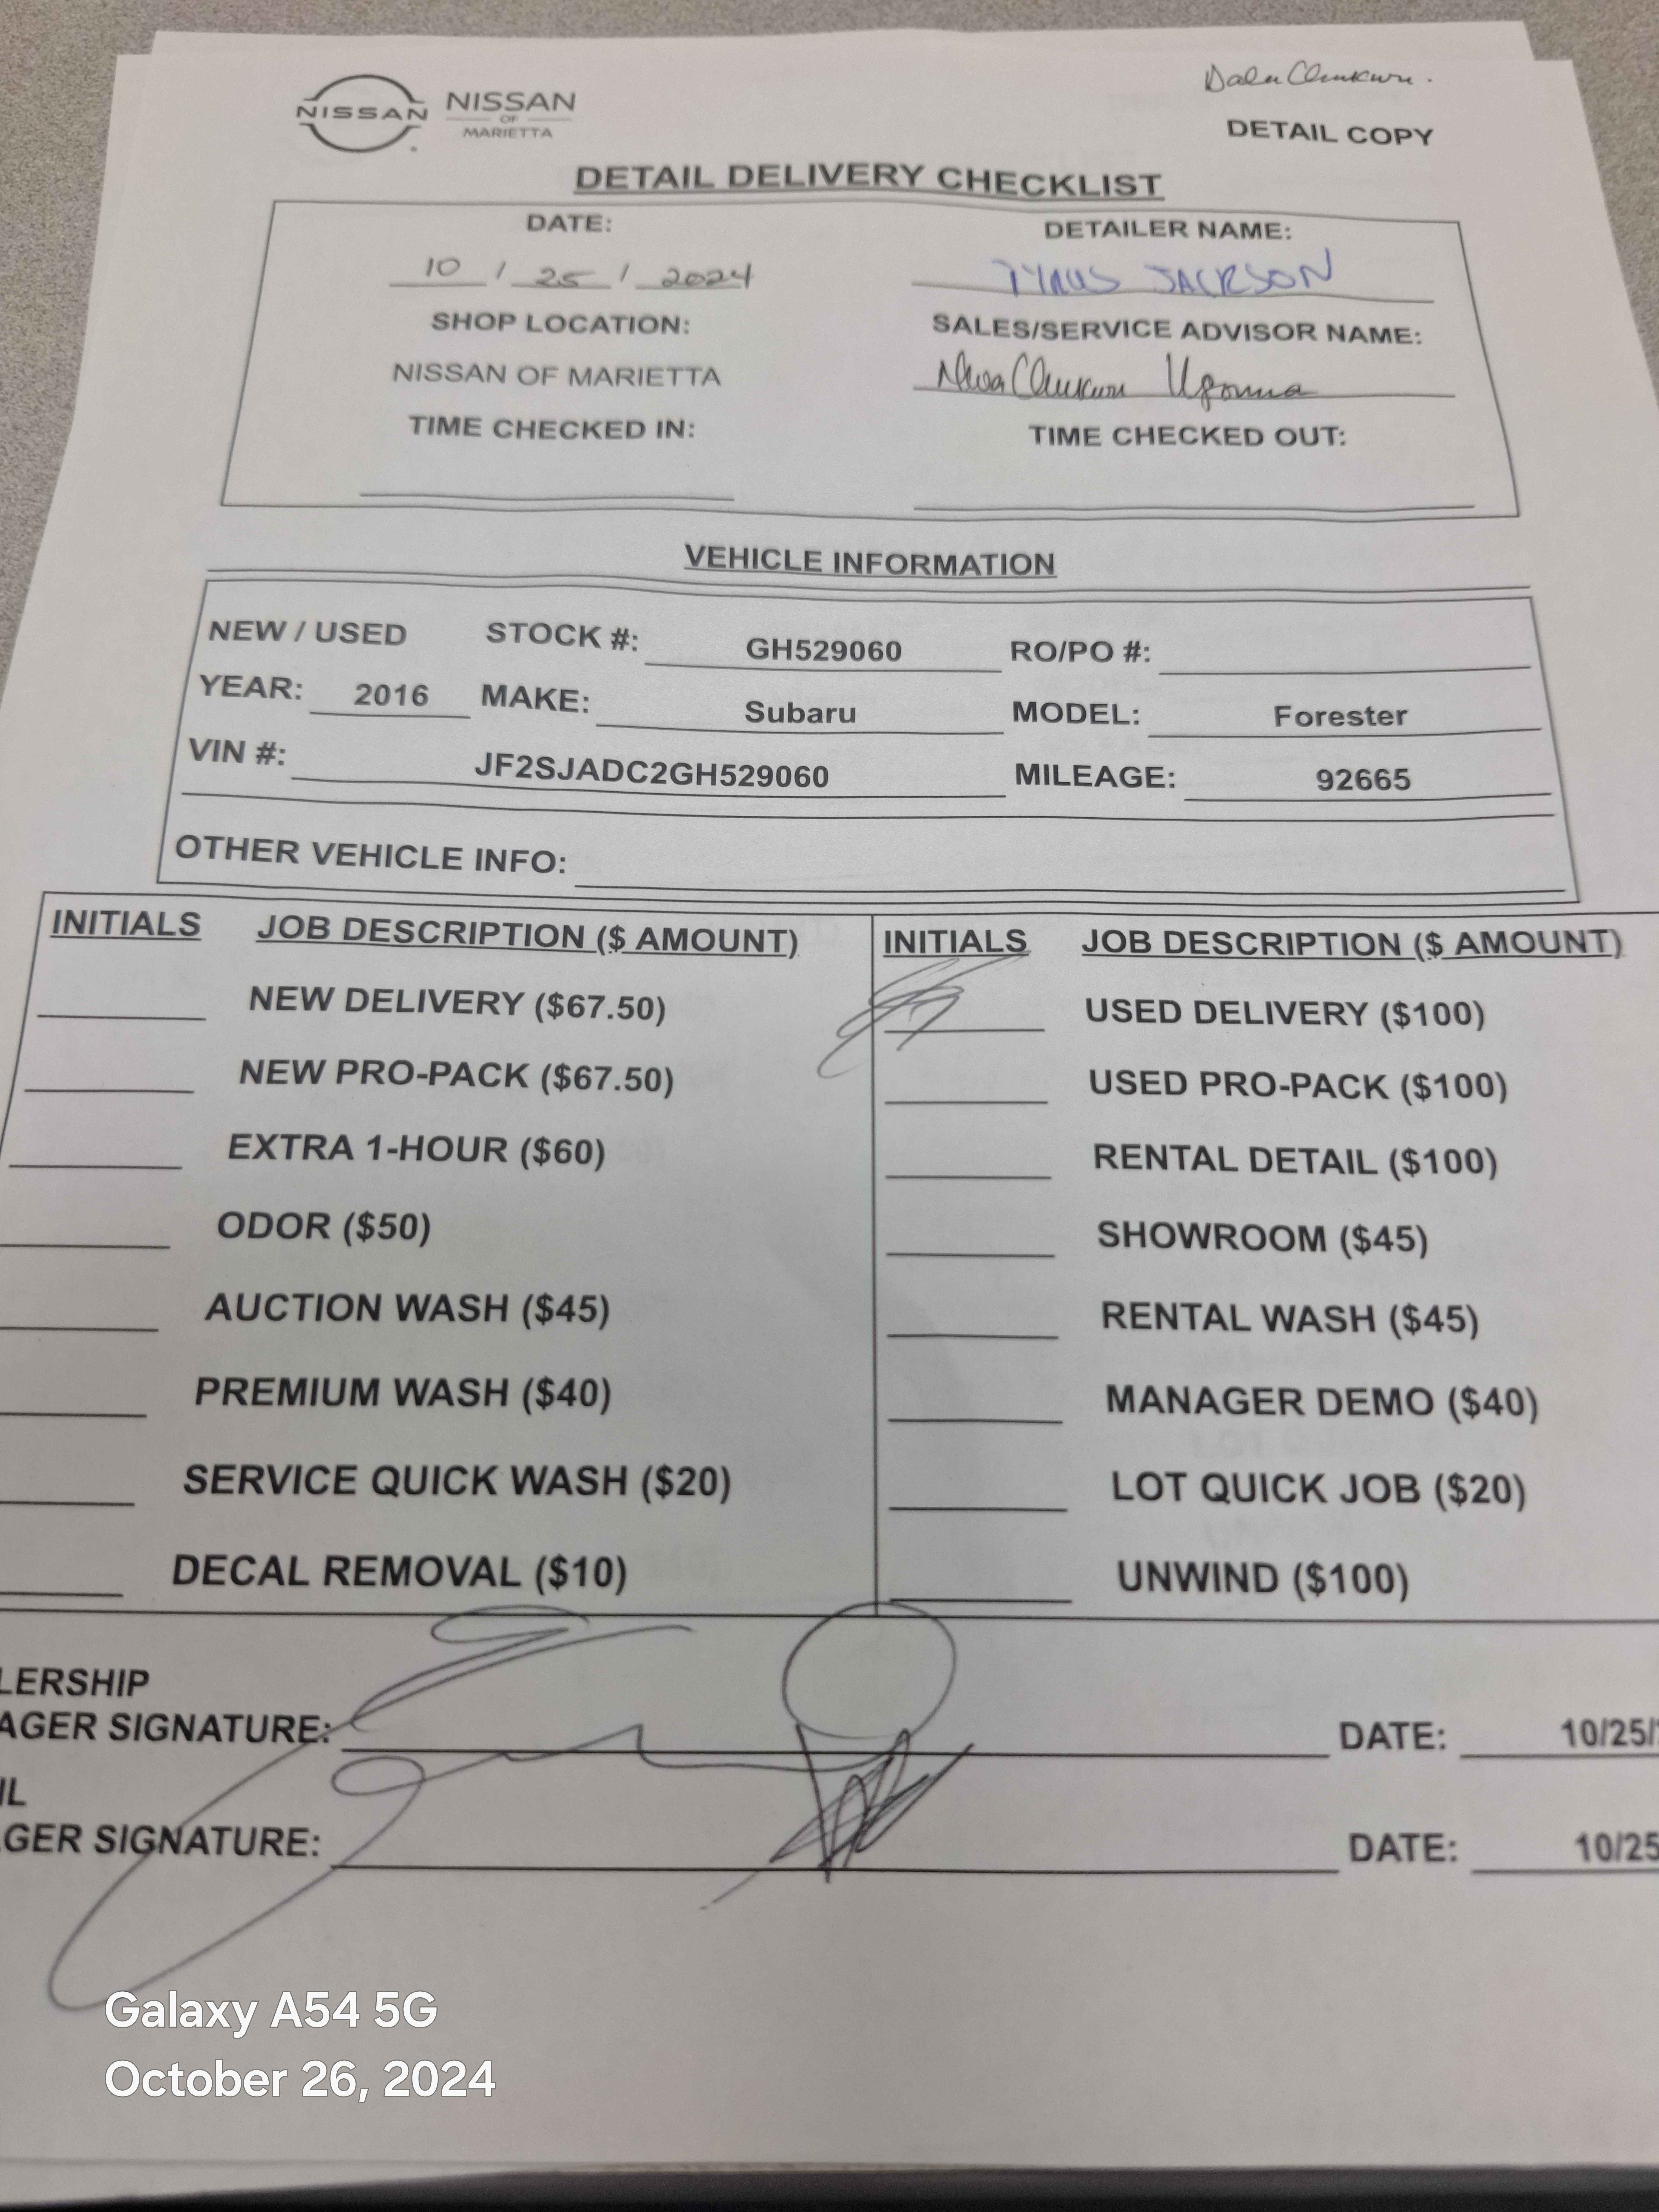 Dalu Chukwu.
NISSAN NISSAN
OF
MARIETTA
DETAIL COPY
DETAIL DELIVERY CHECKLIST
DATE: DETAILER NAME:
10 / 25 / 2024 TYRUS JACKSON
SHOP LOCATION: SALES/SERVICE ADVISOR NAME:
NISSAN OF MARIETTA NwaChukwu Ugonna
TIME CHECKED IN: TIME CHECKED OUT:
VEHICLE INFORMATION
NEW / USED STOCK #: GH529060 RO/PO #:
YEAR: 2016 MAKE: Subaru MODEL: Forester
VIN #: JF2SJADC2GH529060 MILEAGE: 92665
OTHER VEHICLE INFO:
INITIALS JOB DESCRIPTION ($ AMOUNT) INITIALS JOB DESCRIPTION ($ AMOUNT)
NEW DELIVERY ($67.50) USED DELIVERY ($100)
NEW PRO-PACK ($67.50) USED PRO-PACK ($100)
EXTRA 1-HOUR ($60) RENTAL DETAIL ($100)
ODOR ($50) SHOWROOM ($45)
AUCTION WASH ($45) RENTAL WASH ($45)
PREMIUM WASH ($40) MANAGER DEMO ($40)
SERVICE QUICK WASH ($20) LOT QUICK JOB ($20)
DECAL REMOVAL ($10) UNWIND ($100)
LERSHIP
AGER SIGNATURE: DATE: 10/25/
IL
GER SIGNATURE: DATE: 10/25
Galaxy A54 5G
October 26, 2024